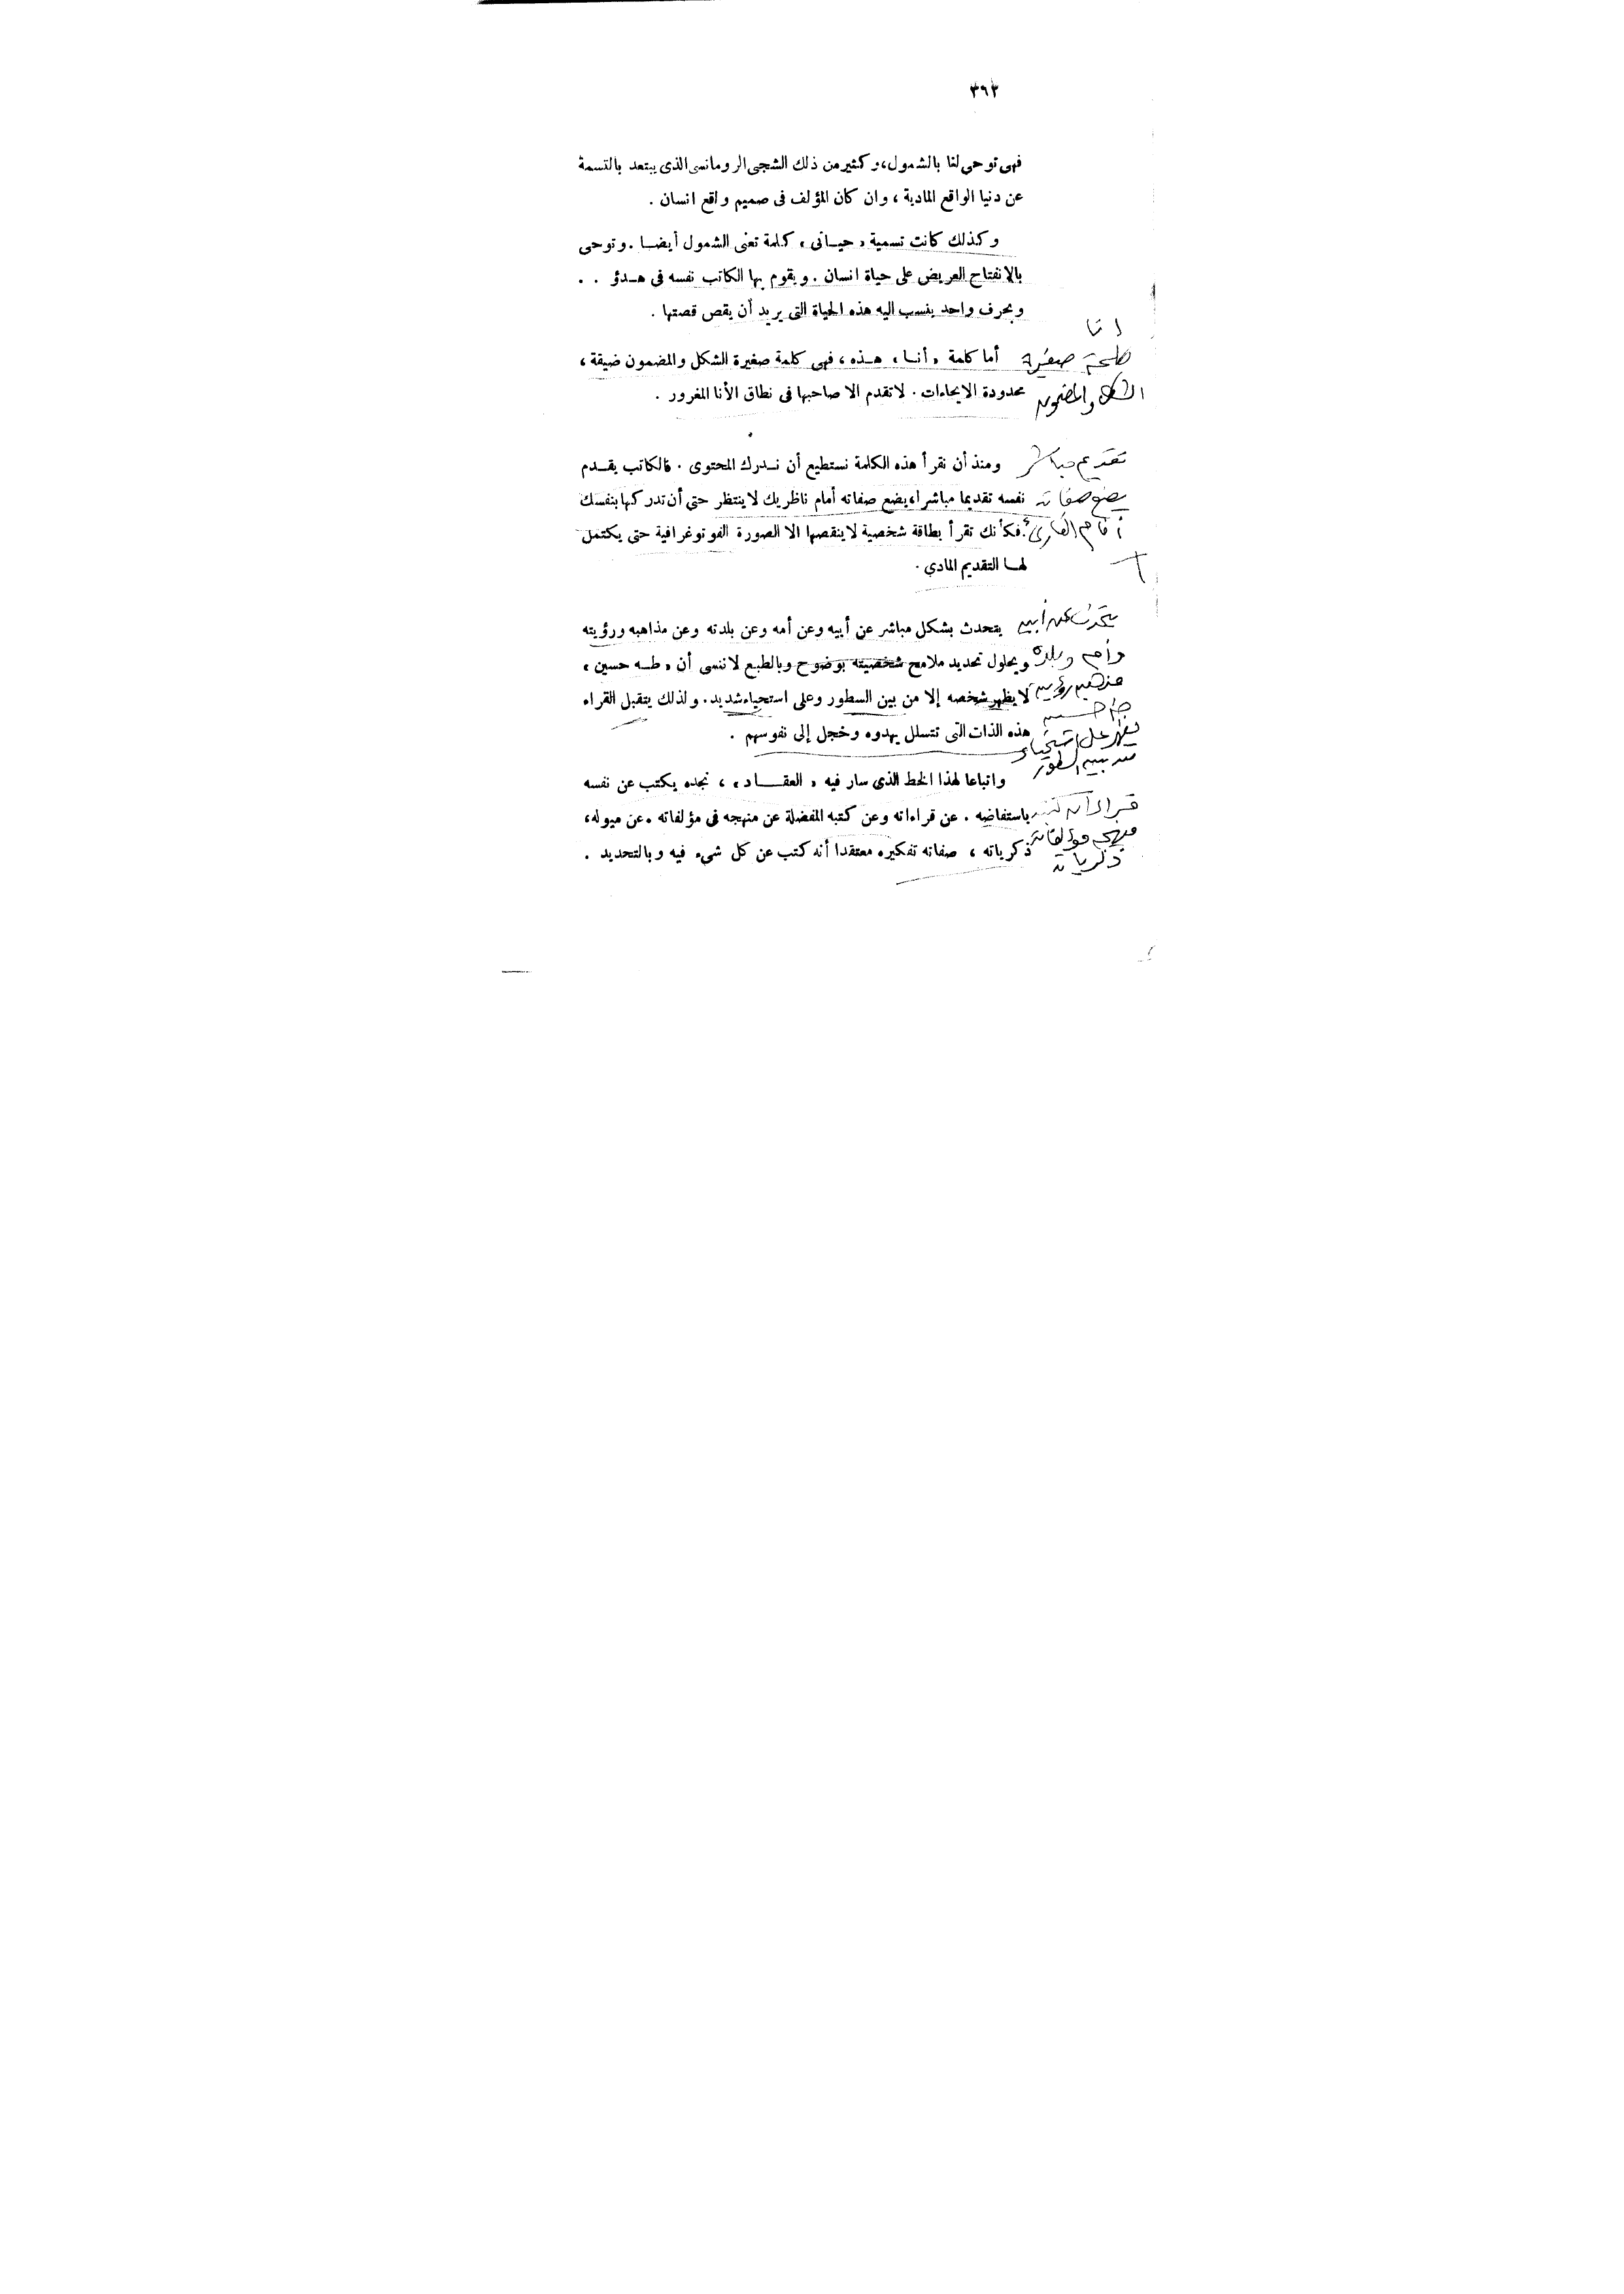 ٣٩٣
فهى توحى لنا بالشمول، وكثير من ذلك الشجى الرومانسى الذى يبتعد بالتسمة
عن دنيا الواقع المادية ، وان كان المؤلف فى صميم واقع انسان .
وكذلك كانت تسمية « حيــاتى » كلمة تعنى الشمول أيضــا . وتوحى
بالانفتاح العريض على حياة انسان . ويقوم بها الكاتب نفسه فى هــدؤ . .
وبحرف واحد ينسب اليه هذه الحياة التى يريد أن يقص قصتها .
انا
كلمة صغيرة
أما كلمة « أنــا » هــذه ، فهى كلمة صغيرة الشكل والمضمون ضيقة ،
الشكل والمضمون
محدودة الايحاءات . لاتقدم الا صاحبها فى نطاق الأنا المغرور .
تقديم مباشر
ومنذ أن نقرأ هذه الكلمة نستطيع أن نــدرك المحتوى . فالكاتب يقــدم
يضع صفاته
نفسه تقديما مباشرا، يضع صفاته أمام ناظريك لاينتظر حتى أن تدركها بنفسك
أمام القارئ
فكأنك تقرأ بطاقة شخصية لاينقصها الا الصورة الفوتوغرافية حتى يكتمل
لهــا التقديم المادي .
يتحدث عن أبيه
يتحدث بشكل مباشر عن أبيه وعن أمه وعن بلدته وعن مذاهبه ورؤيته
وأمه وبلده
ويحلول تحديد ملامح شخصيته بوضوح وبالطبع لاننسى أن « طــه حسين »
مذهبه رؤيته
لايظهر شخصه إلا من بين السطور وعلى استحياء شديد. ولذلك يتقبل القراء
طه حسين
هذه الذات التى تتسلل بهدوه وخجل إلى نفوسهم .
يظهر على استحياء
من بين السطور
واتباعا لهذا الخط الذى سار فيه « العقــــاد » ، نجده يكتب عن نفسه
قراءاته كتبه
باستفاضه . عن قراءاته وعن كتبه المفضلة عن منهجه فى مؤلفاته . عن ميوله،
منهجه مؤلفاته
ذكرياته ، صفاته تفكيره معتقدا أنه كتب عن كل شىء فيه وبالتحديد .
ذكرياته